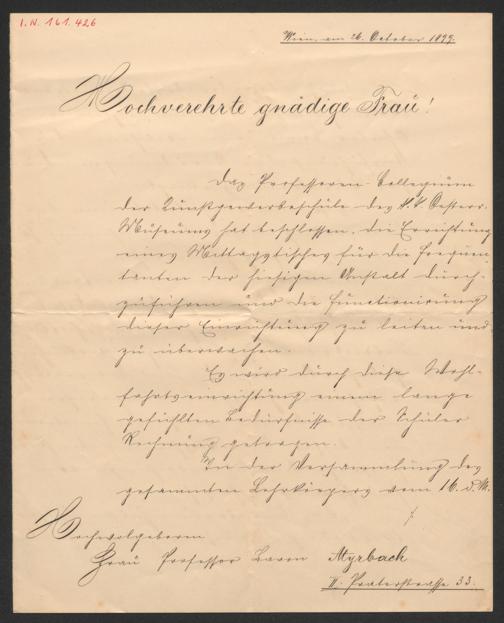 I.N. 161.426
Wien, am 26. October 1899.
Hochverehrte gnädige Frau!
Das Professoren-Collegium
der Kunstgewerbeschule des k. k. Oesterr.
Museums hat beschlossen, die Errichtung
eines Mittagstisches für die Frequen
tanten der hiesigen Anstalt durch-
zuführen und die Functionirung
dieser Einrichtung zu leiten und
zu überwachen.
Es wird durch diese Wohl-
fahrtseinrichtung einem lange
gefühlten Bedürfnisse der Schüler
Rechnung getragen.
In der Versammlung des
gesammten Lehrkörpers vom 16. d. M.
Hochwolgeboren
Frau Professor Baron Myrbach
II. Praterstrasse 33.